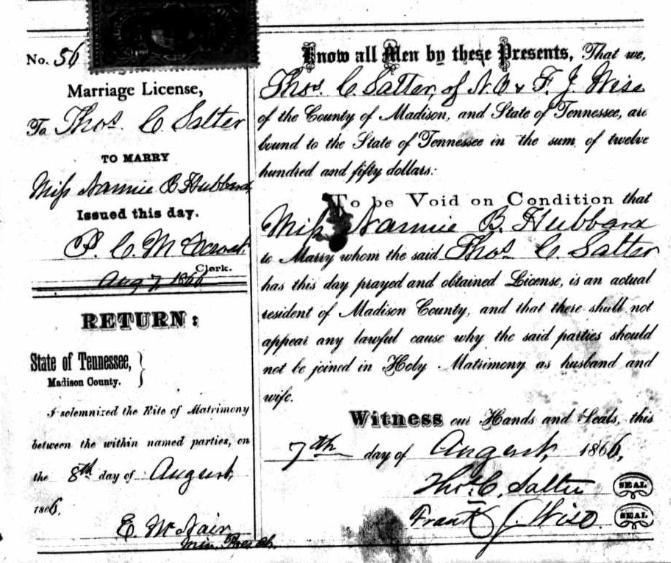 No. 56
Marriage License,
To Thos. C Salter
TO MARRY
Miss Nannie B Hubbard
Issued this day.
P. C. McCowat
Clerk.
Aug 7, 1866
RETURN:
State of Tennessee,
Madison County.
I solemnized the Rite of Matrimony
between the within named parties, on
the 8th day of August,
1866.
E McNair
Min.
Know all Men by these Presents, That we,
Thos. C Salter, of N.O & F. J Wise
of the County of Madison, and State of Tennessee, are
bound to the State of Tennessee in the sum of twelve
hundred and fifty dollars:
To be Void on Condition that
Miss Nannie B. Hubbard
to Marry whom the said Thos. C Salter
has this day prayed and obtained License, is an actual
resident of Madison County, and that there shall not
appear any lawful cause why the said parties should
not be joined in Holy Matrimony as husband and
wife.
Witness our Hands and Seals, this
7th day of August 1866,
Thos. C. Salter SEAL
Frank J. Wise SEAL